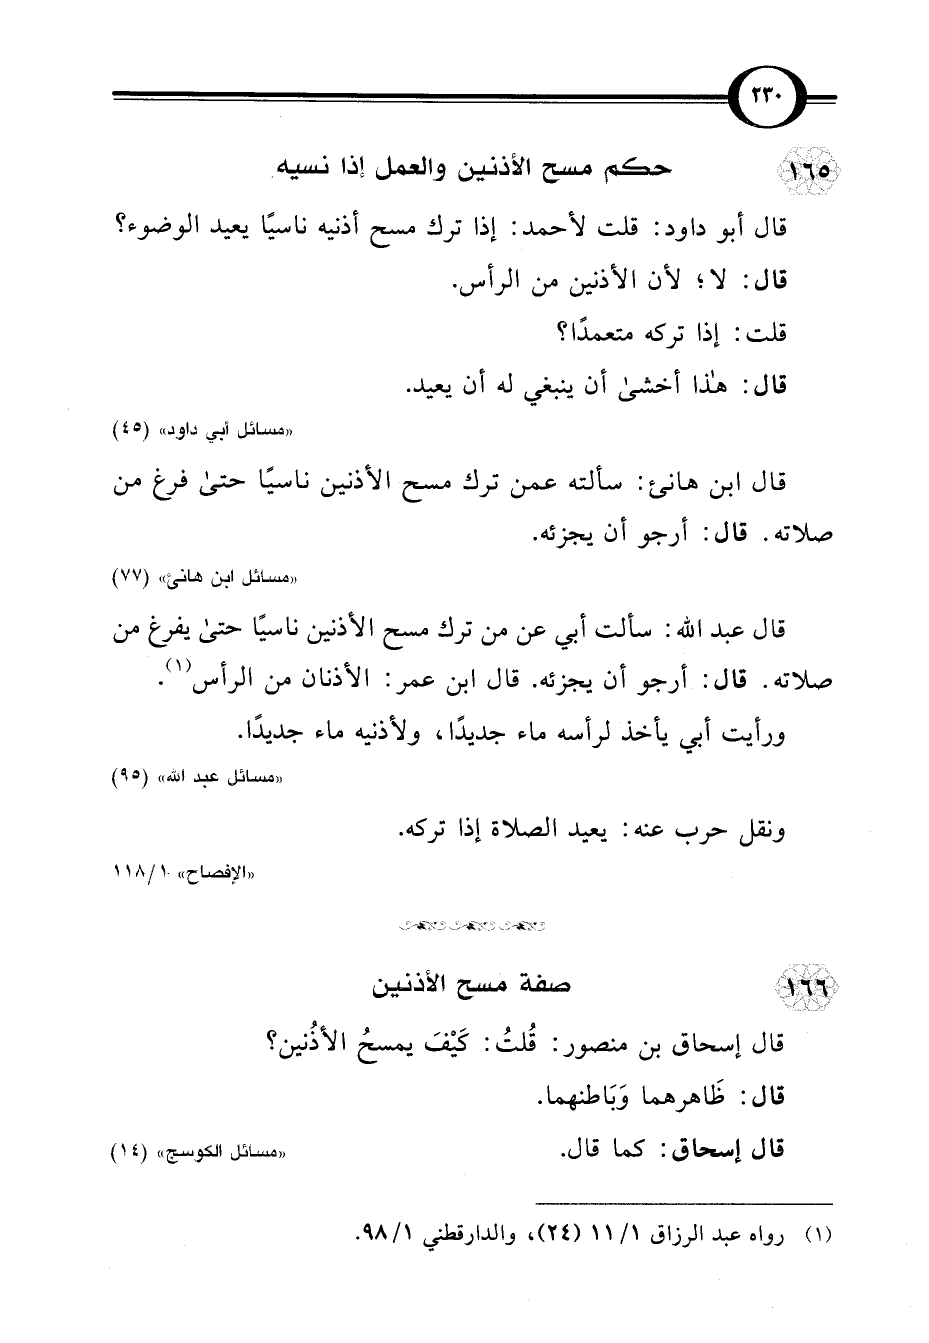 ٢٣٠
١٦٥ حكم مسح الأذنين والعمل إذا نسيه
قال أبو داود: قلت لأحمد: إذا ترك مسح أذنيه ناسيًا يعيد الوضوء؟
قال: لا؛ لأن الأذنين من الرأس.
قلت: إذا تركه متعمدًا؟
قال: هذا أخشىٰ أن ينبغي له أن يعيد.
«مسائل أبي داود» (٤٥)
قال ابن هانئ: سألته عمن ترك مسح الأذنين ناسيًا حتىٰ فرغ من
صلاته. قال: أرجو أن يجزئه.
«مسائل ابن هانئ» (٧٧)
قال عبد الله: سألت أبي عن من ترك مسح الأذنين ناسيًا حتىٰ يفرغ من
صلاته. قال: أرجو أن يجزئه. قال ابن عمر: الأذنان من الرأس(١).
ورأيت أبي يأخذ لرأسه ماء جديدًا، ولأذنيه ماء جديدًا.
«مسائل عبد الله» (٩٥)
ونقل حرب عنه: يعيد الصلاة إذا تركه.
«الإفصاح» ١/ ١١٨
١٦٦ صفة مسح الأذنين
قال إسحاق بن منصور: قُلتُ: كَيْفَ يمسحُ الأذُنين؟
قال: ظَاهرهما وَبَاطنهما.
قال إسحاق: كما قال. «مسائل الكوسج» (١٤)
(١) رواه عبد الرزاق ١/ ١١ (٢٤)، والدارقطني ١/ ٩٨.